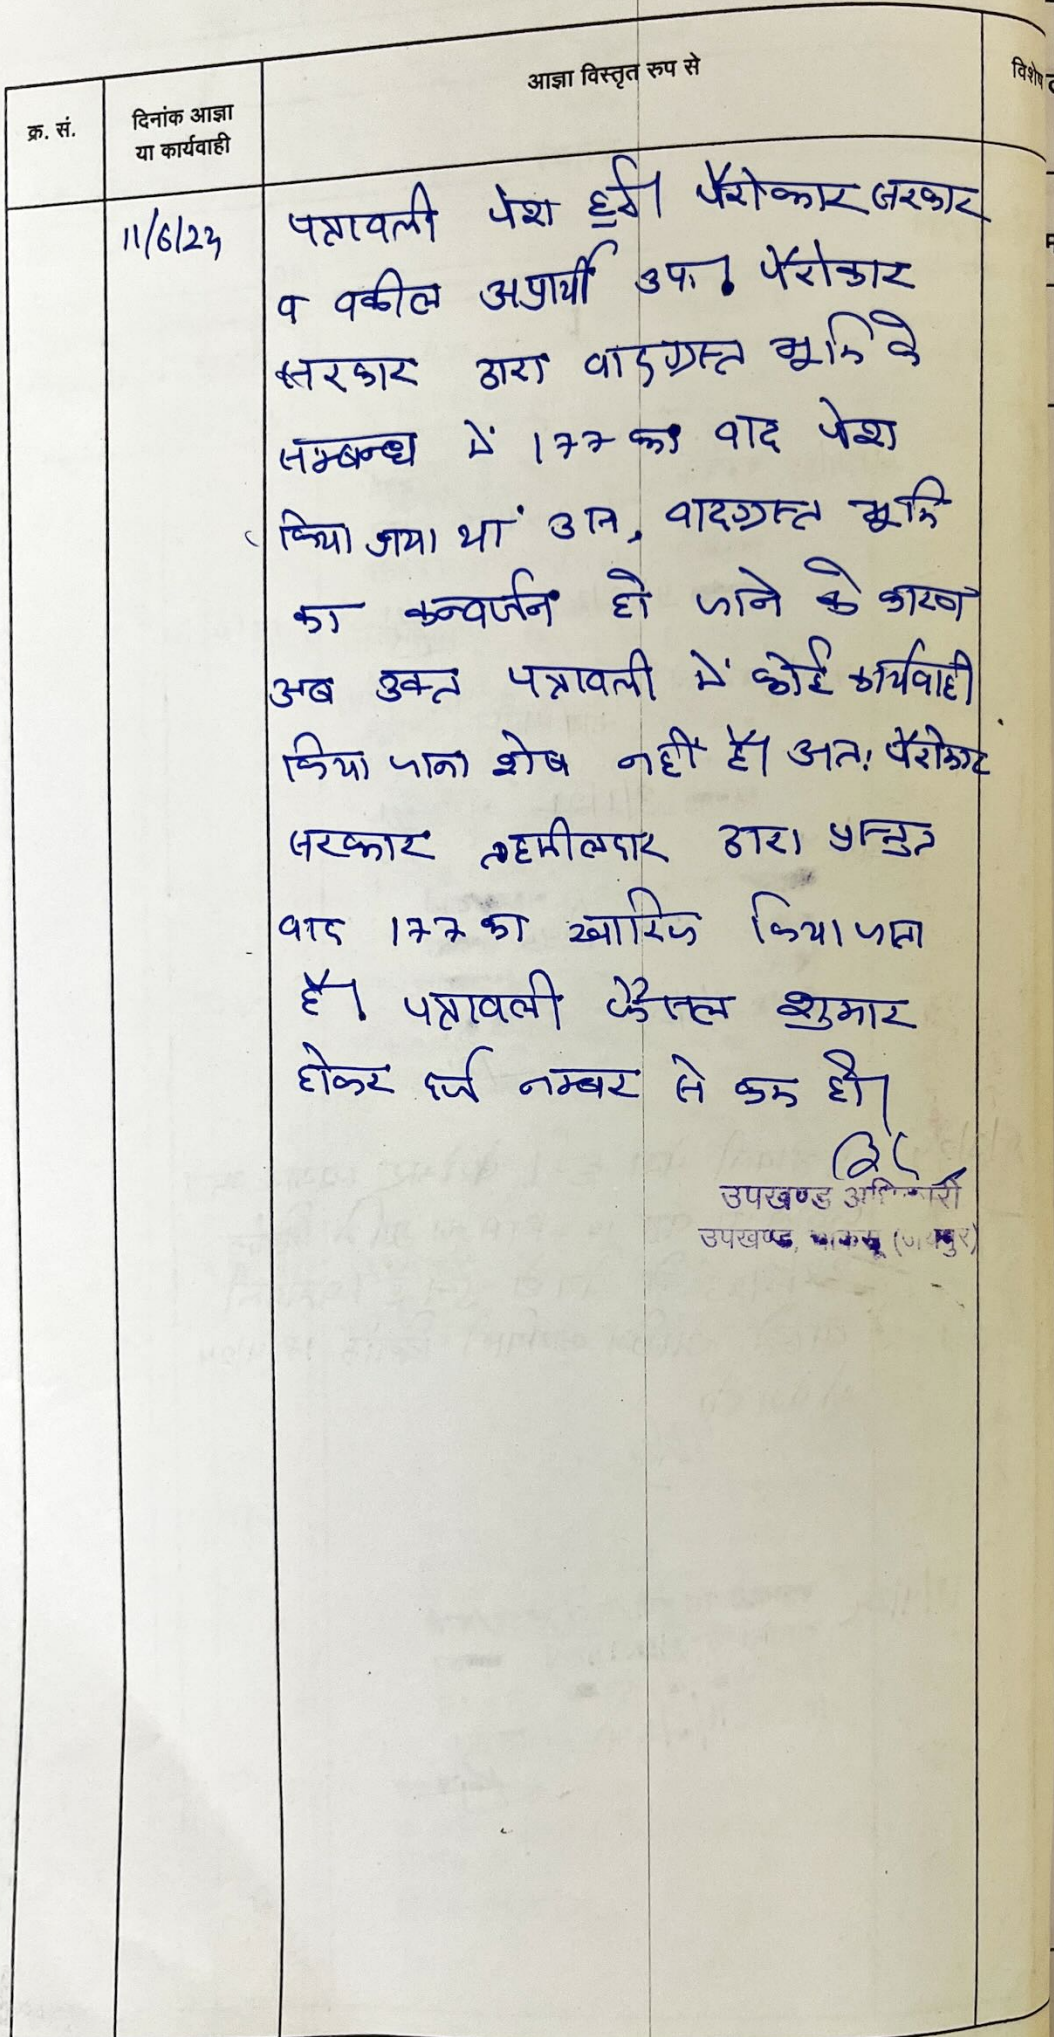 क्र. सं.
दिनांक आज्ञा
या कार्यवाही
आज्ञा विस्तृत रुप से
विशेष
11/6/24
पत्रावली पेश हुई। पैरोकार सरकार
व वकील अप्रार्थी उप। पैरोकार
सरकार द्वारा वादग्रस्त भूमि के
सम्बन्ध में 177 का वाद पेश
किया गया था अत, वादग्रस्त भूमि
का कन्वर्जन हो जाने के कारण
अब उक्त पत्रावली में कोई कार्यवाही
किया जाना शेष नहीं है। अतः पैरोकार
सरकार तहसीलदार द्वारा प्रस्तुत
वाद 177 का खारिज किया जाता
है। पत्रावली फैसल शुमार
होकर दर्ज नम्बर से कम हो।
उपखण्ड अधिकारी
उपखण्ड, चाकसू (जयपुर)